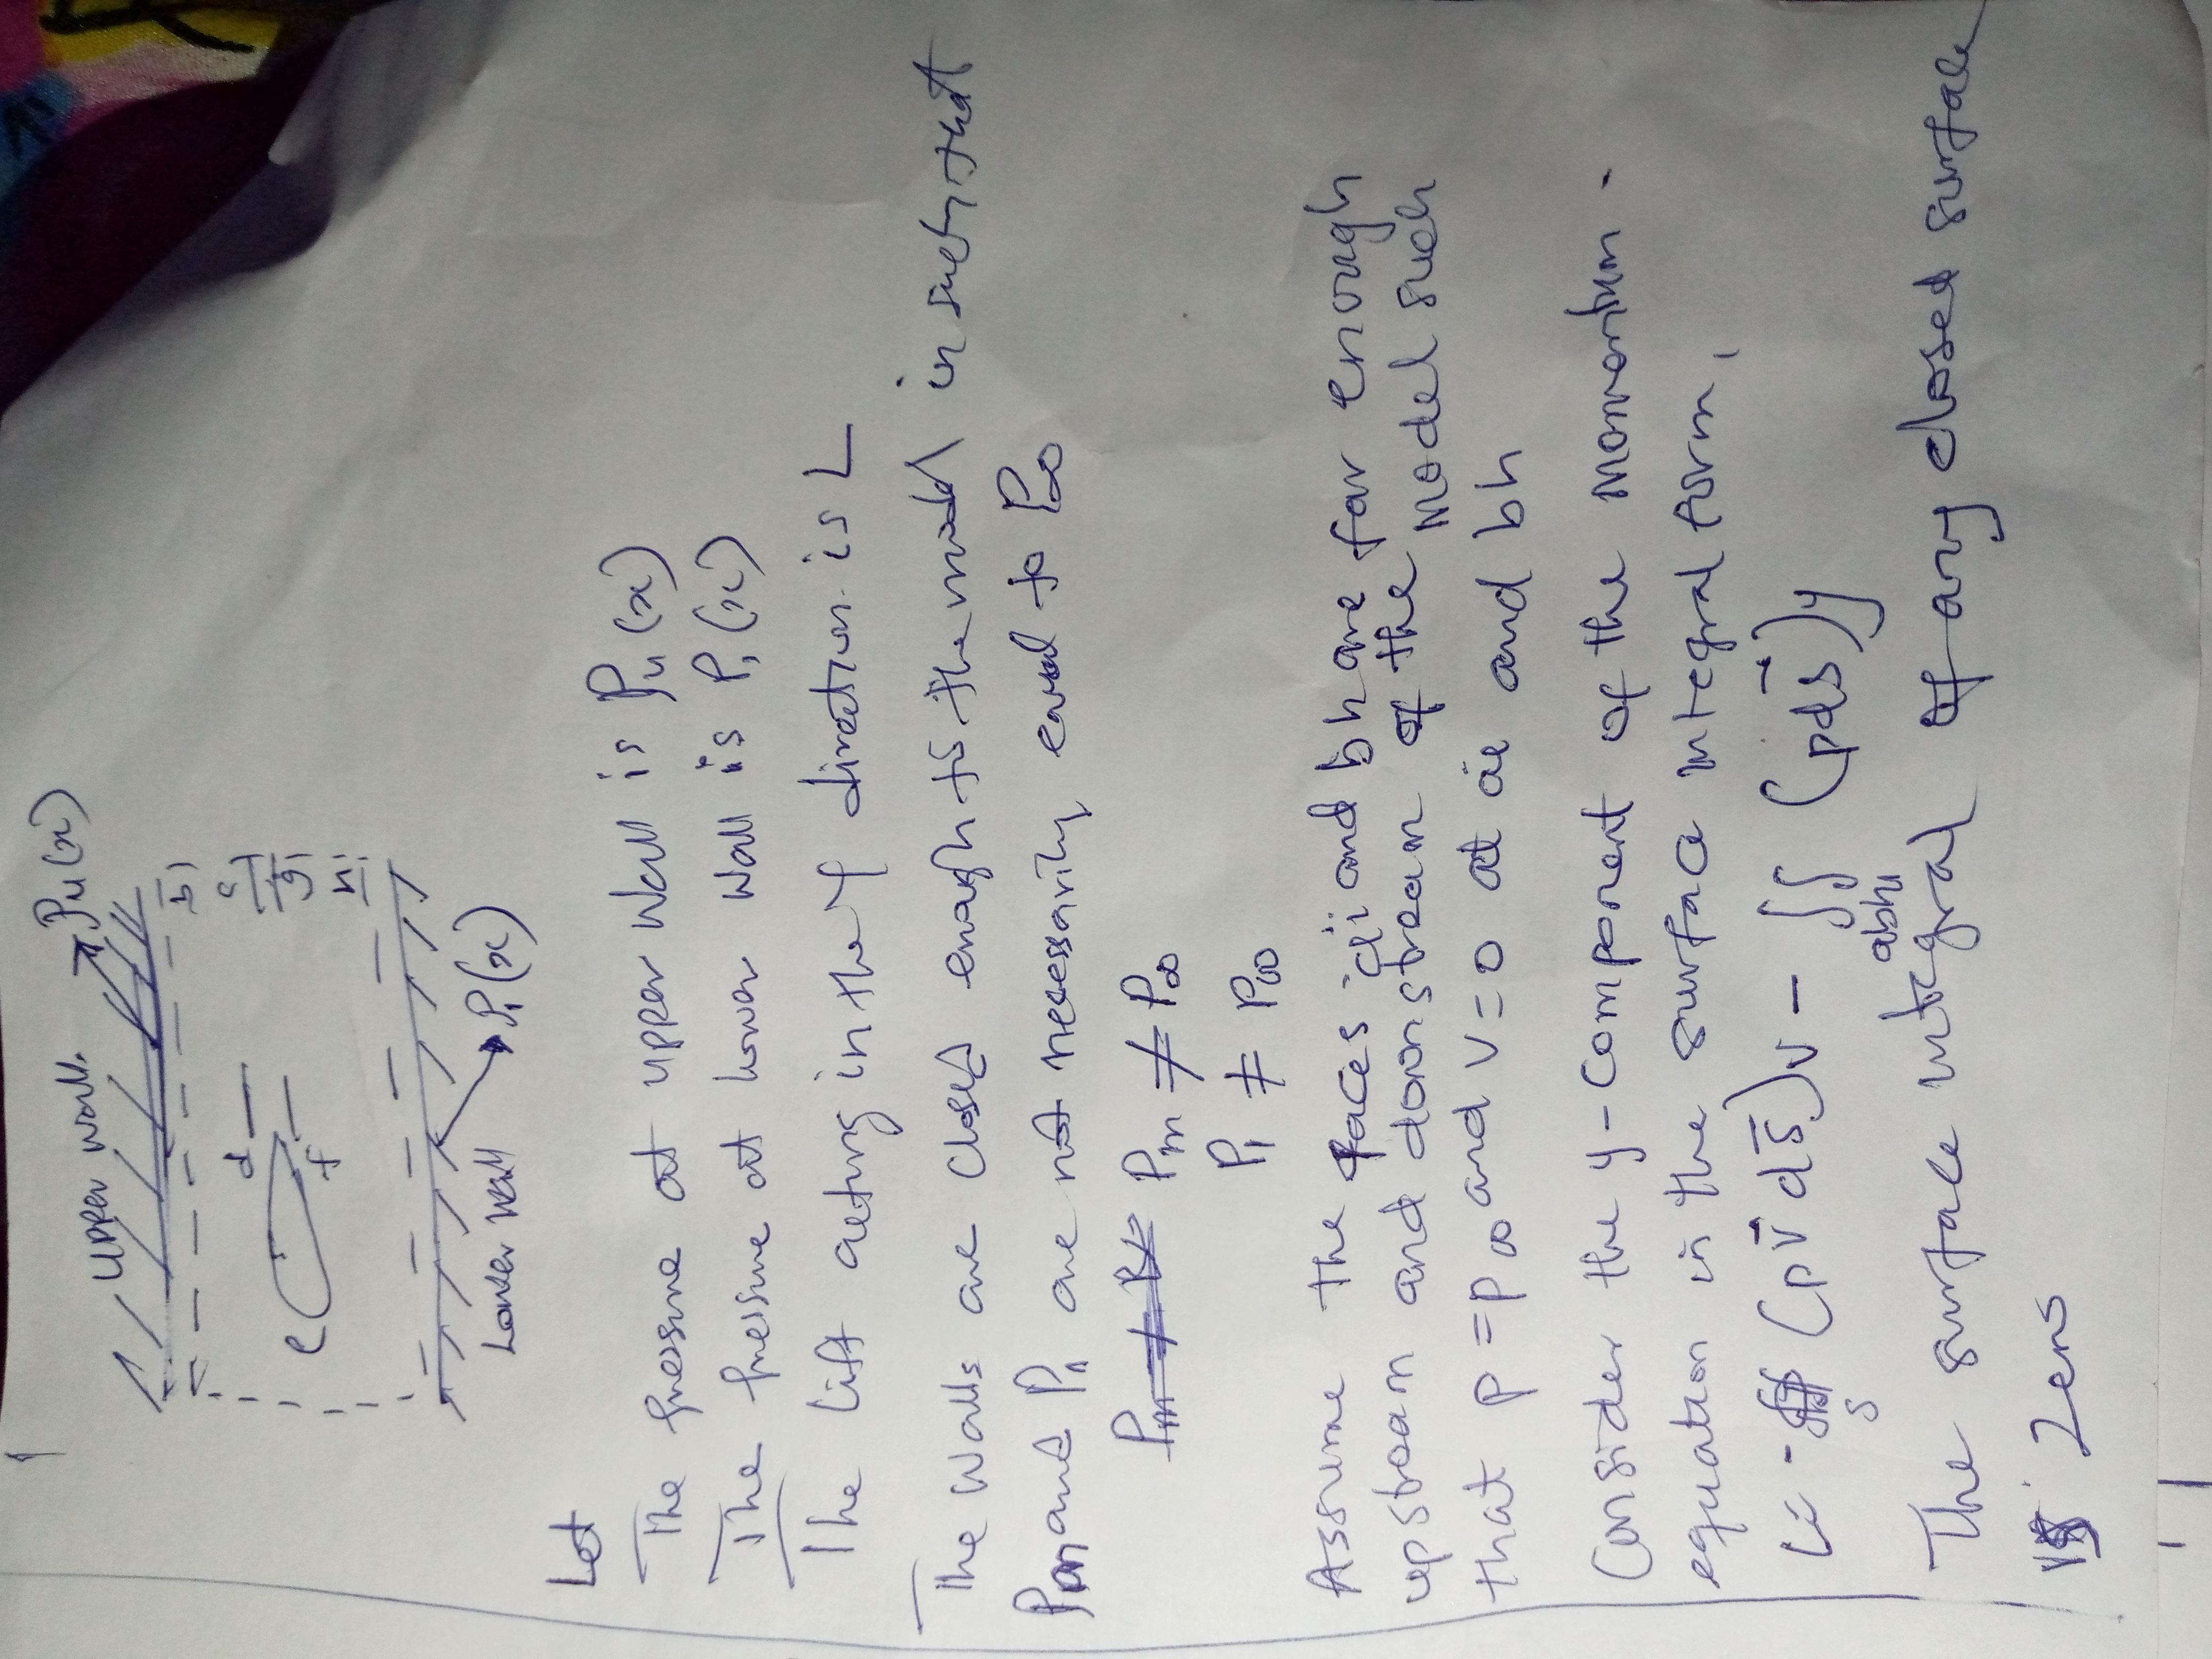 Upper wall.
Pu(x)
d
e
f
b
c
g
h
i
Lower wall
P1(x)
Let
The pressure at upper wall is Pu(x)
The pressure at lower wall is P1(x)
The Lift acting in the y direction is L
The walls are closed enough to the model in such that
and P1 are not necessarily equal to P∞
Pm ≠ P∞
P1 ≠ P∞
Assume the faces ai and bh are far enough
upstream and downstream of the model such
that p = p∞ and v = 0 at ai and bh
Consider the y-component of the momentum
equation in the surface integral form,
L = - ∯ (ρv̄ ds̄)v - ∬ (pds̄)y
s
abhi
The surface integral of any closed surface
is Zero